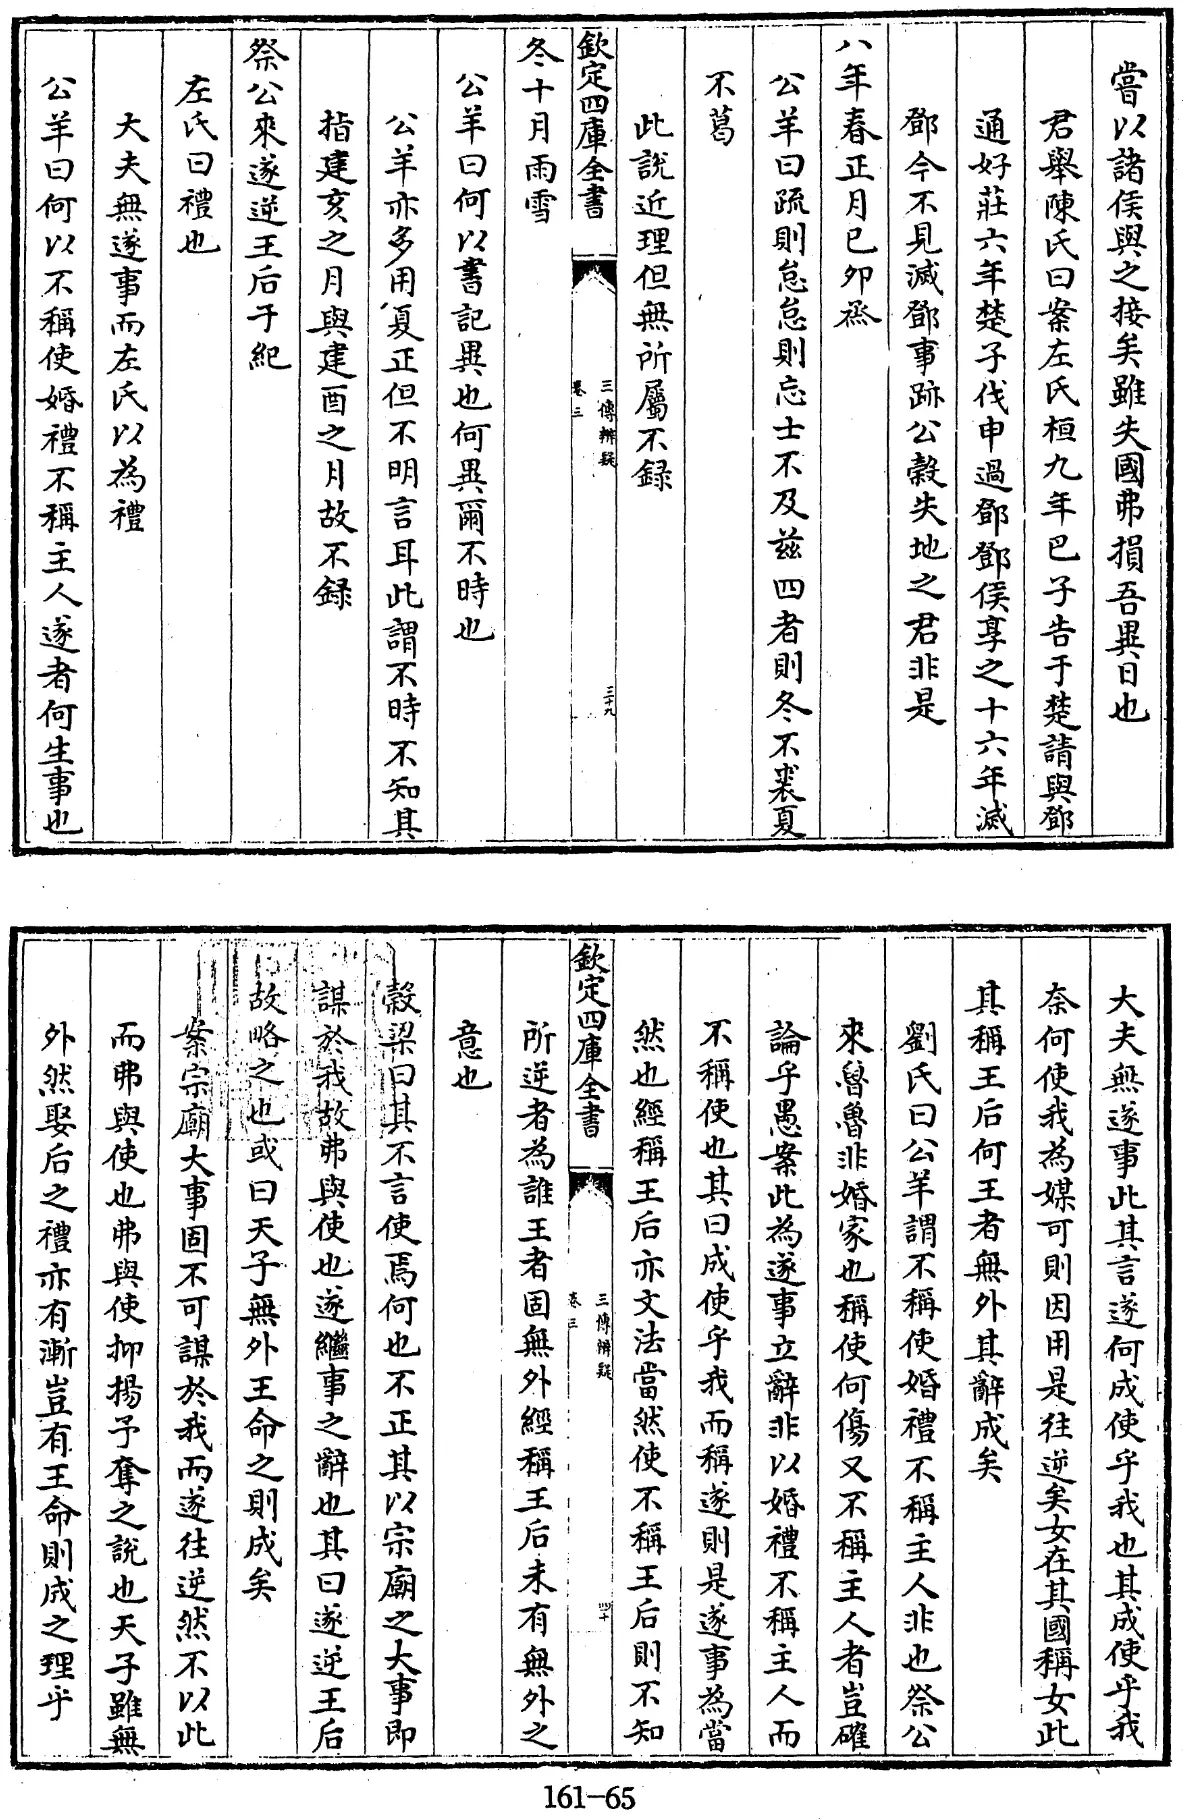 嘗以諸侯與之接矣雖失國弗損吾異日也
君舉陳氏曰案左氏桓九年巴子告于楚請與鄧
通好莊六年楚子伐申過鄧鄧侯享之十六年滅
鄧今不見滅鄧事跡公穀失地之君非是
八年春正月己卯烝
公羊曰疏則怠怠則忘士不及茲四者則冬不裘夏
不葛
此說近理但無所屬不録
欽定四庫全書
三傳辨疑
卷三
三十九
冬十月雨雪
公羊曰何以書記異也何異爾不時也
公羊亦多用夏正但不明言耳此謂不時不知其
指建亥之月與建酉之月故不録
祭公來遂逆王后于紀
左氏曰禮也
大夫無遂事而左氏以為禮
公羊曰何以不稱使婚禮不稱主人遂者何生事也
大夫無遂事此其言遂何成使乎我也其成使乎我
奈何使我為媒可則因用是往逆矣女在其國稱女此
其稱王后何王者無外其辭成矣
劉氏曰公羊謂不稱使婚禮不稱主人非也祭公
來魯魯非婚家也稱使何傷又不稱主人者豈確
論乎愚案此為遂事立辭非以婚禮不稱主人而
不稱使也其曰成使乎我而稱遂則是遂事為當
然也經稱王后亦文法當然使不稱王后則不知
欽定四庫全書
三傳辨疑
卷三
四十
所逆者為誰王者固無外經稱王后未有無外之
意也
穀梁曰其不言使焉何也不正其以宗廟之大事即
謀於我故弗與使也遂繼事之辭也其曰遂逆王后
故略之也或曰天子無外王命之則成矣
案宗廟大事固不可謀於我而遂往逆然不以此
而弗與使也弗與使抑揚予奪之說也天子雖無
外然娶后之禮亦有漸豈有王命則成之理乎
161-65